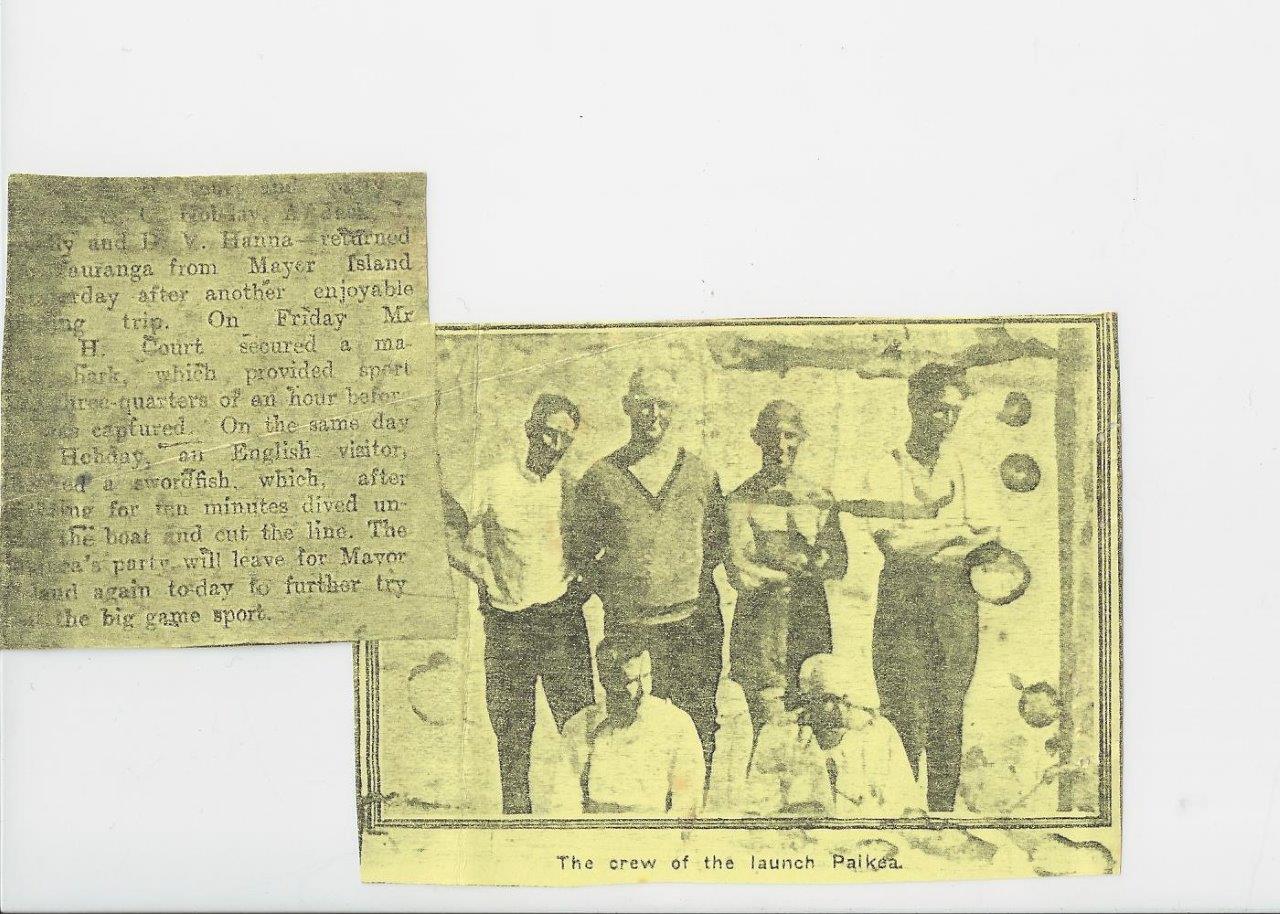 and
C. Hobday, J.
and D. V. Hanna—returned
auranga from Mayer Island
rday after another enjoyable
ng trip. On Friday Mr
H. Court secured a ma-
hark, which provided sport
three-quarters of an hour befor
as captured. On the same day
Hobday, an English visitor,
ed a swordfish, which, after
ing for ten minutes dived un-
the boat and cut the line. The
ea's party will leave for Mayor
and again to-day to further try
the big game sport.
The crew of the launch Paikea.